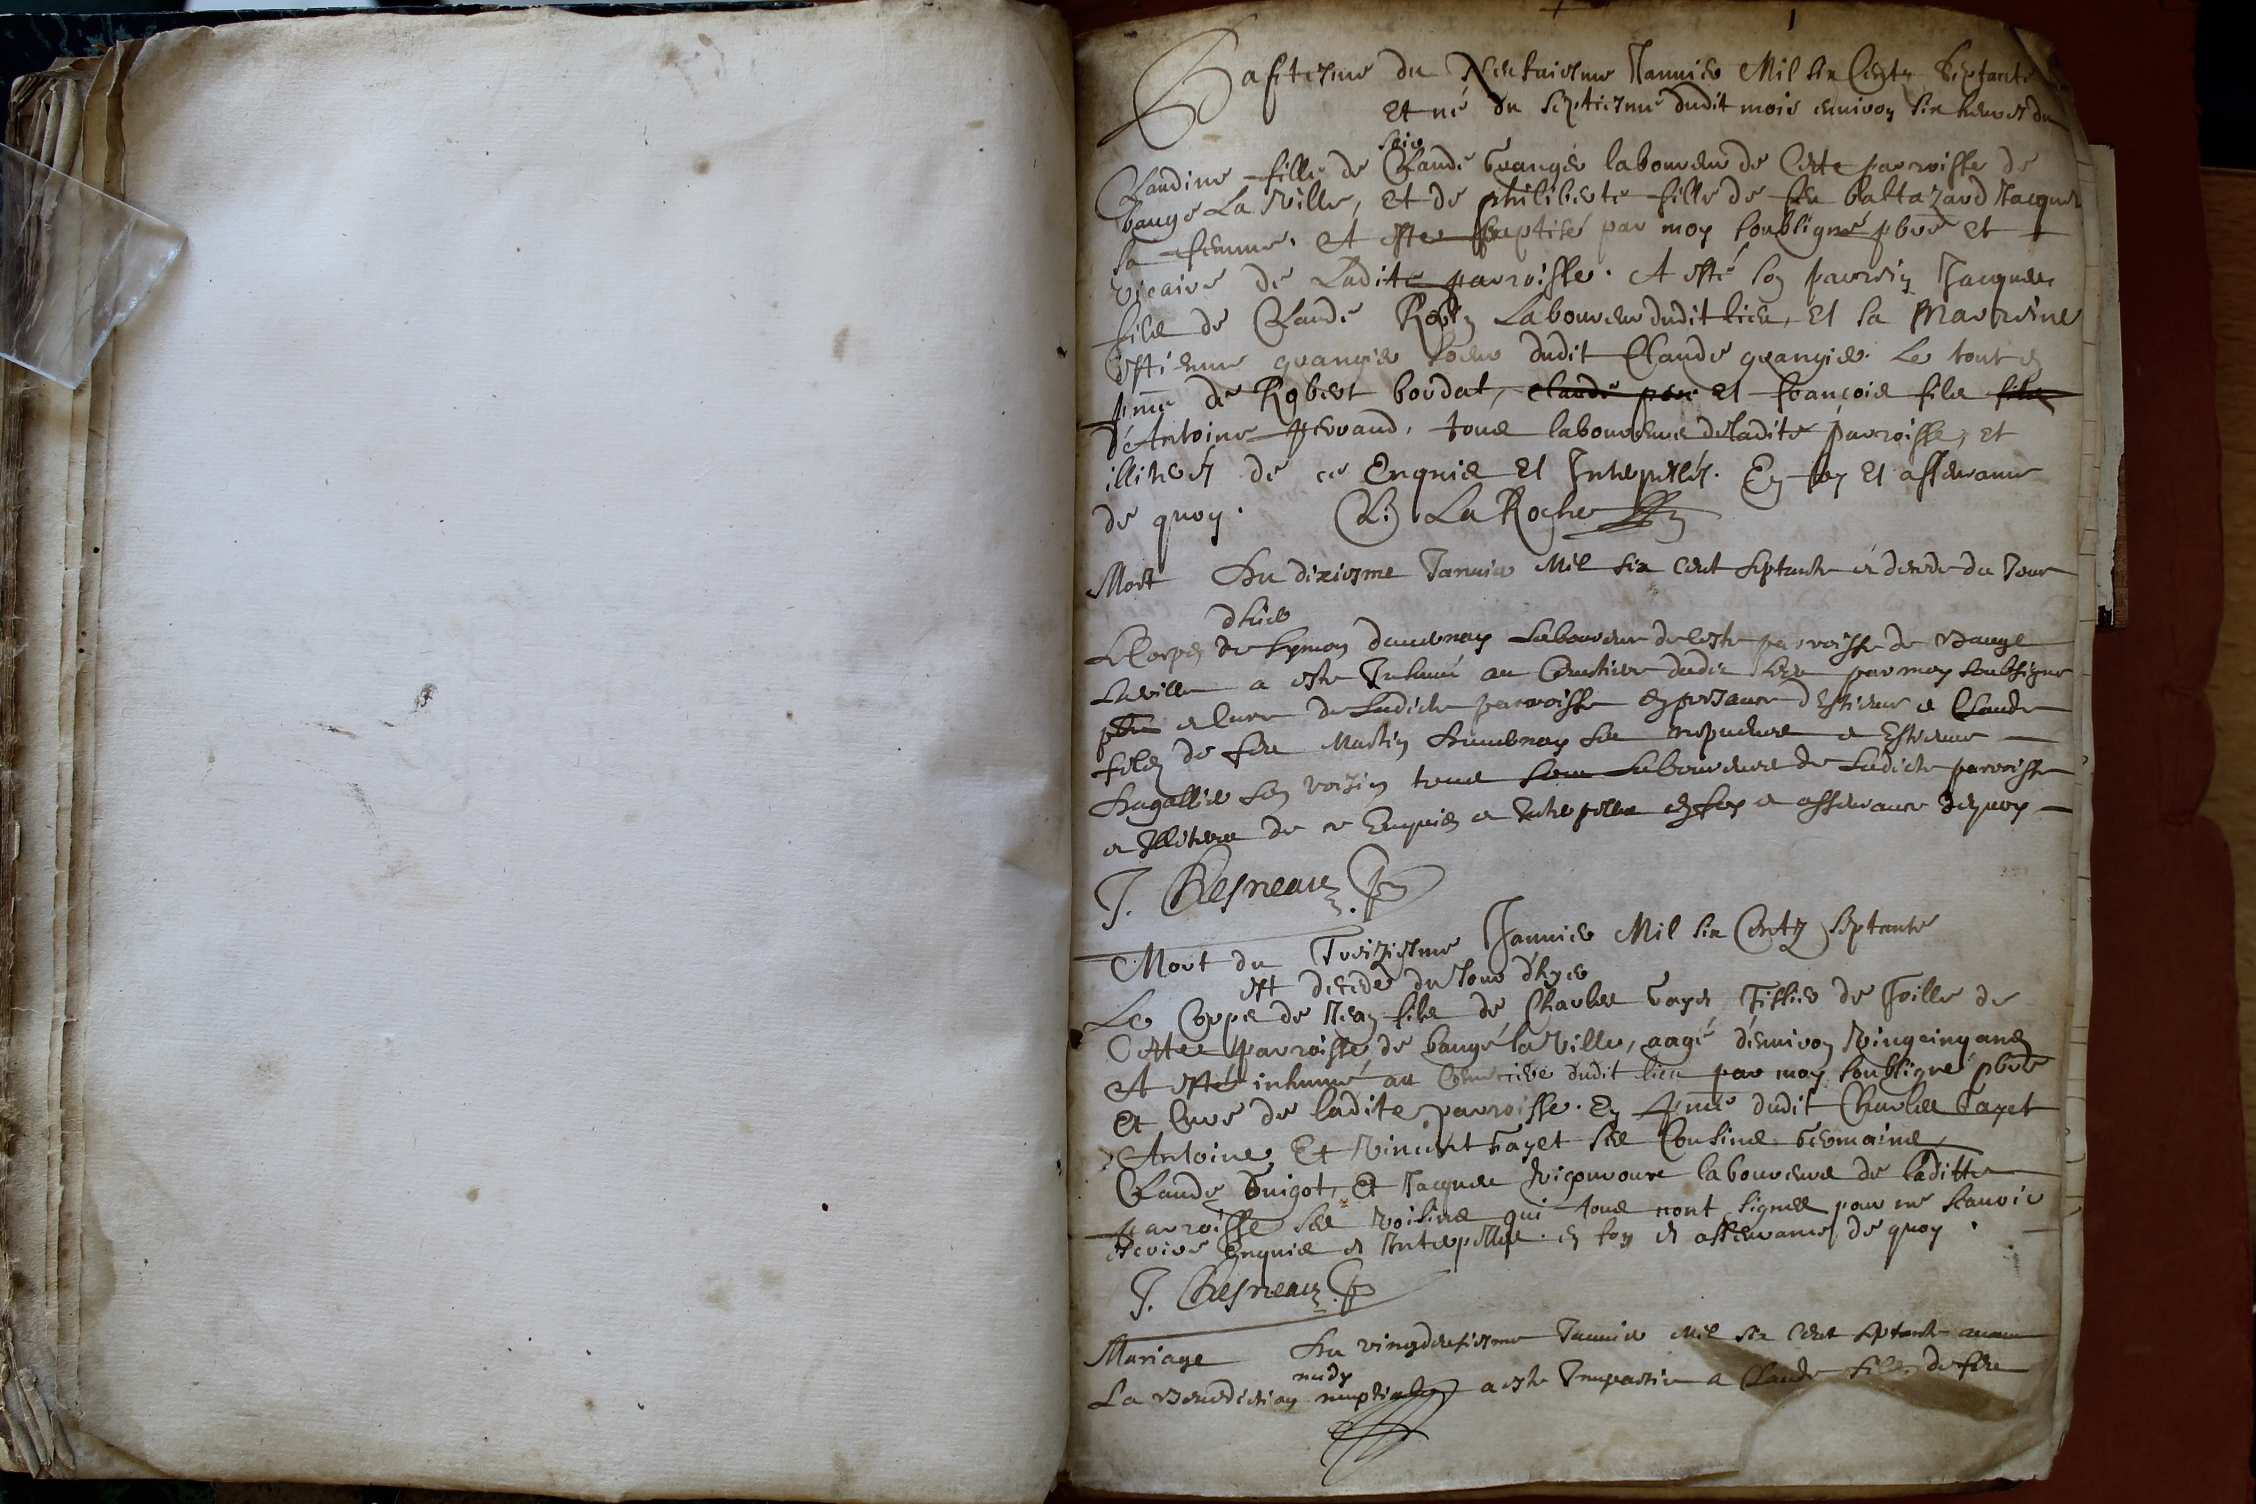 1
Baptesme du Neufuiesme Januier Mil six Centz Septante
Et né du septiesme dudit mois enuiron six heures du
soir
Claudine fille de Claude Grangier laboureur de Cette parroisse de
baugé La Ville, Et de philiberte fille de feu baltazard Jacquet
sa femme. A estee baptisé par moy soubsigné pbre et
vicaire de Ladite parroisse. A esté son parrein Jacques
fils de Claude Robin Laboureur dudit lieu, Et sa Marreine
Estienne grangier soeur dudit Claude grangier. Le tout en
pnce de Robert bordat, Claude Et françois fils fils
d'Antoine perraud, tous laboureurs deladite parroisse, et
illiterés de ce Enquis Et Interpellés. En foy Et asseurance
de quoy. Cl: LaRoche
Mort Du dixiesme Januier Mil six Cent Septante et decede du Jour
d'hier
Le Corps de Symon laboureur de Ceste parroisse de Bauge
Laville a este Inhumé au Cimetiere dudit lieu par moy soubsigne
pbre et Cure de Ladicte parroisse en presance d'Estienne et Claude
filz de feu Martin ses nepueurs et Estienne
son voisin tous laboureurs de Ladicte parroisse
et Illiteres de ce Enquis et Interpelles en foy et asseurance de quoy
J. Chesneau
Mort du Treiziesme Januier Mil six Centz septante
est decede du Jour d'hyer
Le Corps de Jean fils de Charles Fayet, Tissier de Toille de
Cettee parroisse, de baugé la Ville, aagé d'enuiron Vingcinq ans
A esté inhumé au Cimetiere dudit lieu par moy soubsigné pbre
Et Curé de ladite parroisse. En pnce dudit Charles Fayet
Antoine Et Vincent Fayet ses Cousins Germains,
Claude Guigot, Et Jacques laboureurs de laditte
parroisse ses Voisins qui tous nont signes pour ne scauoir
escrire Enquis et Interpelles. en foy et asseurance de quoy.
J. Chesneau
Mariage Du vingdeusiesme Januier Mil six Cent septante auant
midy
La Benediction nuptialle a este Impartie a Claude filz de feu